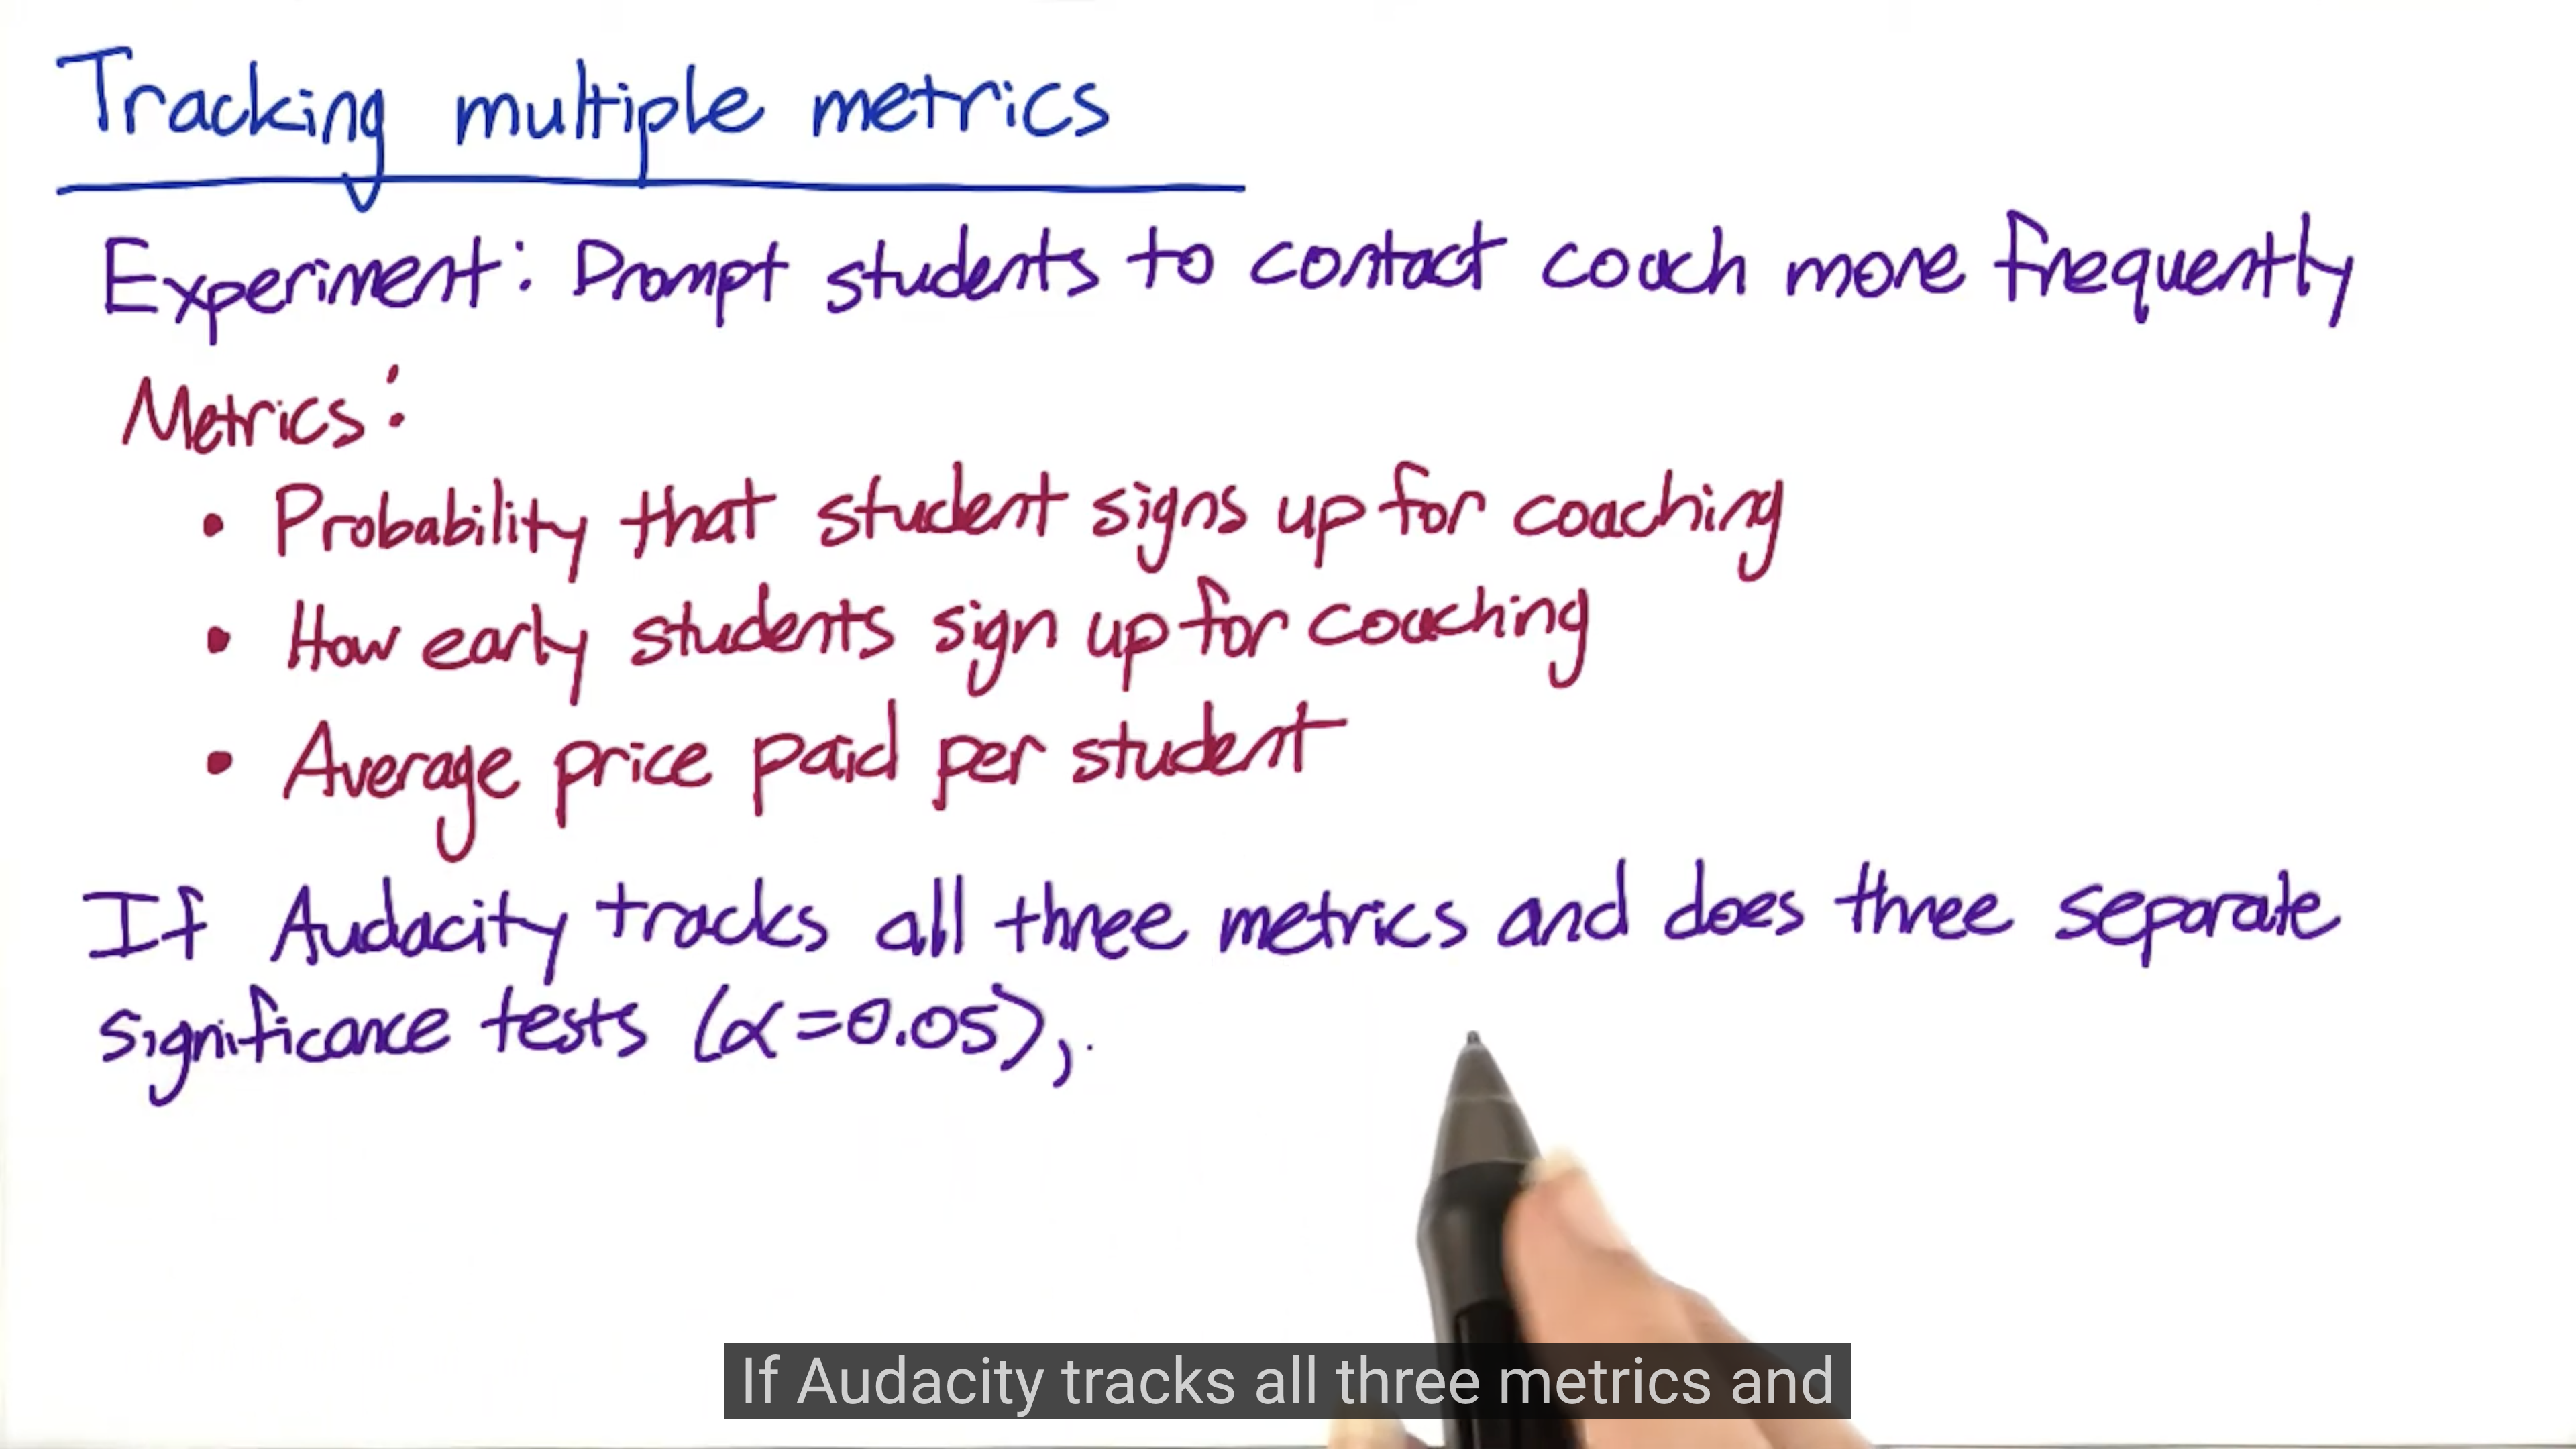 Tracking multiple metrics
Experiment: Prompt students to contact coach more frequently
Metrics:
• Probability that student signs up for coaching
• How early students sign up for coaching
• Average price paid per student
If Audacity tracks all three metrics and does three separate
significance tests (α=0.05),
If Audacity tracks all three metrics and